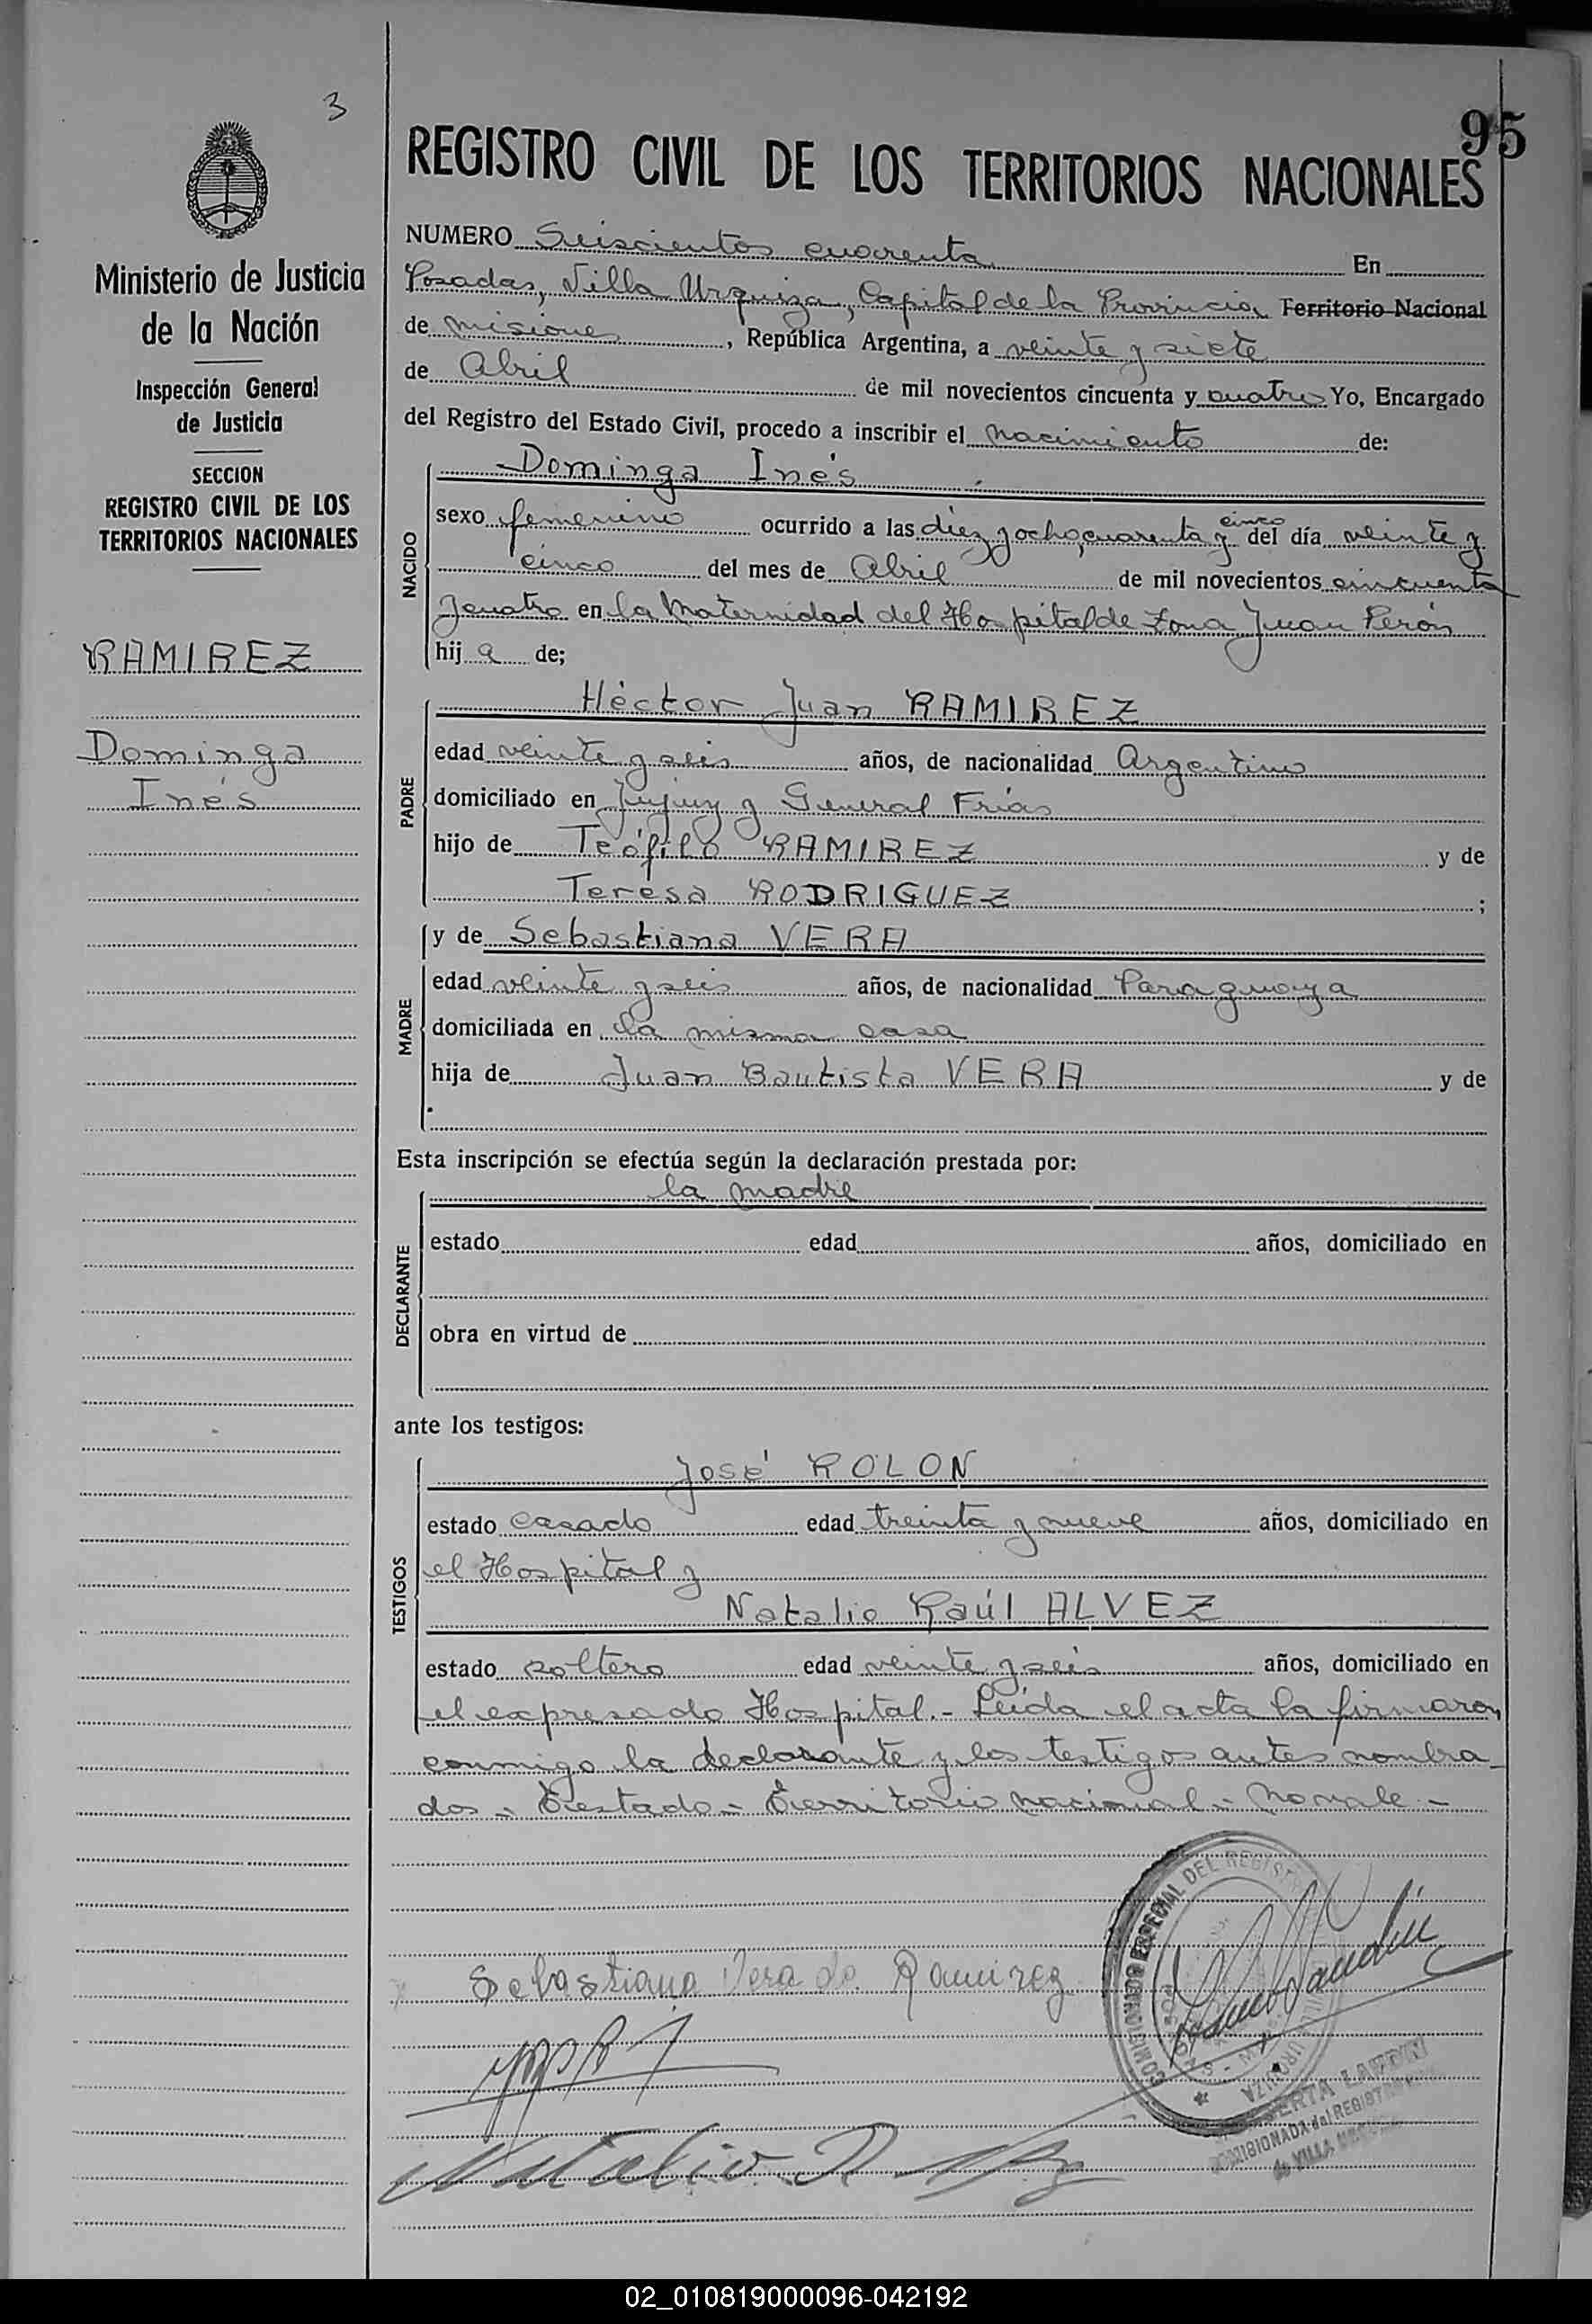 3
95
REGISTRO CIVIL DE LOS TERRITORIOS NACIONALES
Ministerio de Justicia
de la Nación
Inspección General
de Justicia
SECCION
REGISTRO CIVIL DE LOS
TERRITORIOS NACIONALES
RAMIREZ
Dominga
Inés
NUMERO Seiscientos cuarenta En
Posadas, Villa Urquiza, Capital de la Provincia Territorio Nacional
de Misiones, República Argentina, a veinte y siete
de Abril de mil novecientos cincuenta y cuatro Yo, Encargado
del Registro del Estado Civil, procedo a inscribir el nacimiento de:
NACIDO
Dominga Inés
sexo femenino ocurrido a las diez y ocho, cuarenta y cinco del día veinte y
cinco del mes de Abril de mil novecientos cincuenta
y cuatro en la Maternidad del Hospital de Zona Juan Perón
hija de;
PADRE
Héctor Juan RAMIREZ
edad veinte y seis años, de nacionalidad Argentino
domiciliado en Jujuy y General Frías
hijo de Teófilo RAMIREZ y de
Teresa RODRIGUEZ ;
y de Sebastiana VERA
MADRE
edad veinte y seis años, de nacionalidad Paraguaya
domiciliada en la misma casa
hija de Juan Bautista VERA y de
Esta inscripción se efectúa según la declaración prestada por:
DECLARANTE
la madre
estado edad años, domiciliado en
obra en virtud de
ante los testigos:
TESTIGOS
José ROLON
estado casado edad treinta y nueve años, domiciliado en
el Hospital y
Natalio Raúl ALVEZ
estado soltero edad veinte y seis años, domiciliado en
el expresado Hospital.- Leída el acta la firmaron
conmigo la declarante y los testigos antes nombra
dos - Testado - Territorio nacional - No vale -
Sebastiana Vera de Ramirez
Natalio R
COMISIONADO ESPECIAL DEL REGISTR
URQUIZA
BERTA
COMISIONADA del REGISTRO
de VILLA
02_010819000096-042192